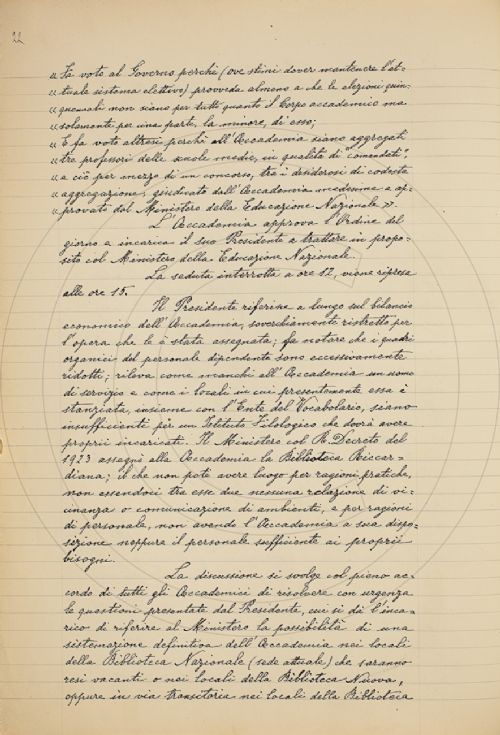 22
« Fa voto al Governo perché (ove stimi dover mantenere l'at-
« tuale sistema elettivo) provveda almeno a che le elezioni quin-
« quennali non siano per tutto quanto il Corpo accademico ma
« solamente per una parte, la minore, di esso;
« E fa voto altresì perchè all'Accademia siano aggregati
« tre professori delle scuole medie, in qualità di "comandati",
« e ciò per mezzo di un concorso, tra i desiderosi di codesta
« aggregazione, giudicato dall'Accademia medesima e ap-
« provato dal Ministero della Educazione Nazionale ».
L'Accademia approva l'Ordine del
giorno e incarica il suo Presidente a trattare in propo-
sito col Ministero della Educazione Nazionale.
La seduta interrotta a ore 12, viene ripresa
alle ore 15.
Il Presidente riferisce a lungo sul bilancio
economico dell'Accademia, soverchiamente ristretto per
l'opera che le è stata assegnata; fa notare che i quadri
organici del personale dipendente sono eccessivamente
ridotti; rileva come manchi all'Accademia un uomo
di servizio e come i locali in cui presentemente essa è
stanziata, insieme con l'Ente del Vocabolario, siano
insufficienti per un Istituto Filologico che dovrà avere
proprii incaricati. Il Ministero col R. Decreto del
1923 assegnò alla Accademia la Biblioteca Riccar-
diana; il che non potè avere luogo per ragioni pratiche,
non essendoci tra esse due nessuna relazione di vi-
cinanza o comunicazione di ambienti, e per ragioni
di personale, non avendo l'Accademia a sua dispo-
sizione neppure il personale sufficiente ai proprii
bisogni.
La discussione si svolge col pieno ac-
cordo di tutti gli Accademici di risolvere con urgenza
le questioni presentate dal Presidente, cui si dà l'inca-
rico di riferire al Ministero la possibilità di una
sistemazione definitiva dell'Accademia nei locali
della Biblioteca Nazionale (sede attuale) che saranno
resi vacanti o nei locali della Biblioteca Nuova,
oppure in via transitoria nei locali della Biblioteca